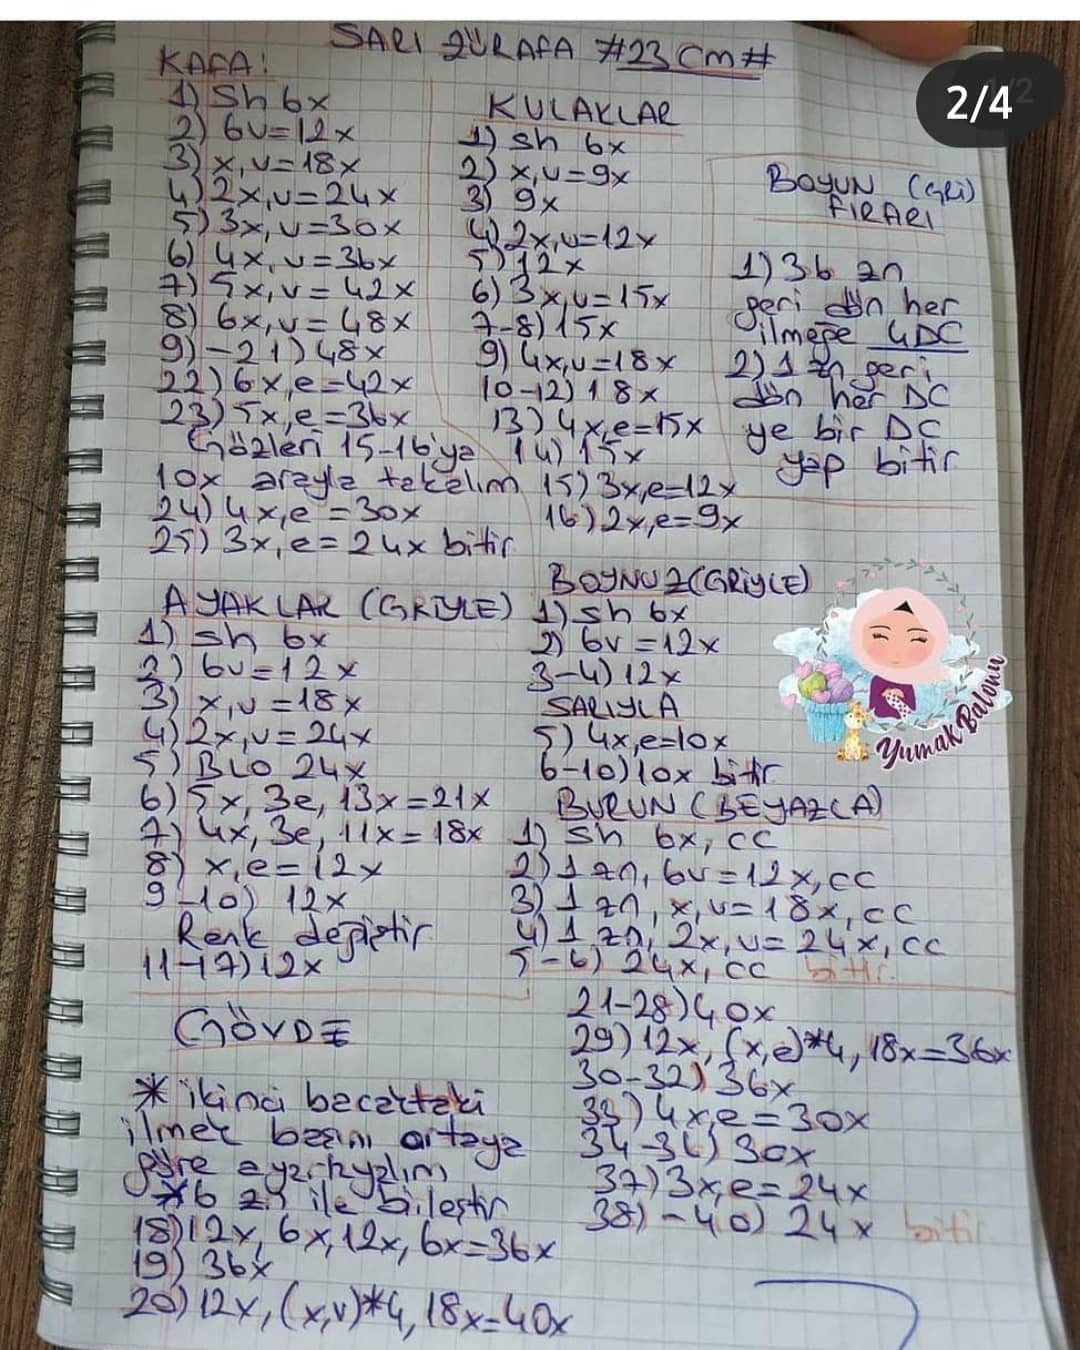 SARI ZÜRAFA #23 CM#
2/4
KAFA:
1) Sh 6x
2) 6v=12x
3) x,v=18x
4) 2x,v=24x
5) 3x,v=30x
6) 4x,v=36x
7) 5x,v=42x
8) 6x,v=48x
9)-21) 48x
22) 6x,e=42x
23) 5x,e=36x
Gözleri 15-16'ya
10x arayla takalım
24) 4x,e=30x
25) 3x,e=24x bitir
KULAKLAR
1) sh 6x
2) x,v=9x
3) 9x
4) 2x,v=12x
5) 12x
6) 3x,v=15x
7-8) 15x
9) 4x,v=18x
10-12) 18x
13) 4x,e=15x
14) 15x
15) 3x,e=12x
16) 2x,e=9x
BOYUN (GRİ)
FIRARI
1) 36 zn
geri dön her
ilmeğe 4DC
2) 1 zn geri
dön her DC
ye bir DC
yap bitir
AYAKLAR (GRİYLE)
1) sh 6x
2) 6v=12x
3) x,v=18x
4) 2x,v=24x
5) BLO 24x
6) 5x, 3e, 13x=21x
7) 4x, 3e, 11x=18x
8) x,e=12x
9-10) 12x
Renk değiştir
11-17) 12x
BOYNUZ (GRİYLE)
1) sh 6x
2) 6v=12x
3-4) 12x
SARIYLA
5) 4x,e=10x
6-10) 10x bitir
BURUN (BEYAZLA)
1) Sh 6x, cc
2) 1 zn, 6v=12x,cc
3) 1 zn, x,v=18x,cc
4) 1 zn, 2x,v=24x,cc
5-6) 24x, cc bitir.
Yumak Balonu
GÖVDE
* ikinci bacaktaki
ilmek başını ortaya
göre ayarlayalım
*6 zn ile birleştir
18) 12x, 6x, 12x, 6x=36x
19) 36x
20) 12x, (x,v)*4, 18x=40x
21-28) 40x
29) 12x, (x,e)*4, 18x=36x
30-32) 36x
33) 4x,e=30x
34-36) 30x
37) 3x,e=24x
38)-40) 24x bitir